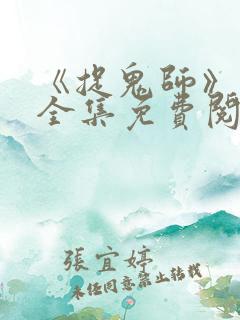 《捉鬼師》
全集免費閱
張宜婷
未經同意禁止轉載